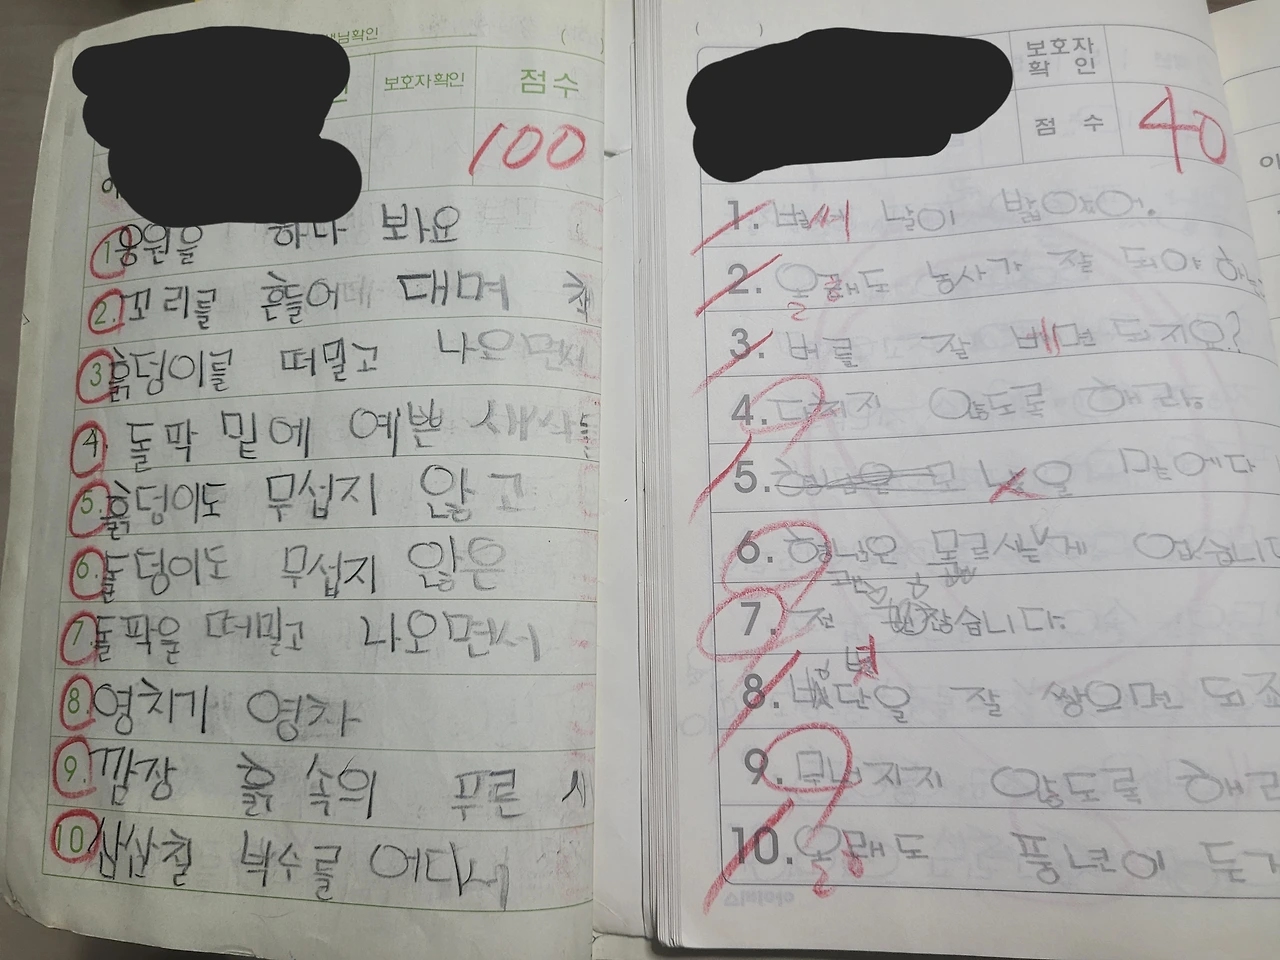 보호자확인 점수
100
1. 응원을 하나 보아요
2. 꼬리를 흔들어 대며
3. 흙덩이를 떠밀고 나오면서
4. 돌막 밑에 예쁜 새싹들
5. 흙덩이도 무섭지 않고
6. 돌덩이도 무섭지 않은
7. 돌팍을 떠밀고 나오면서
8. 영치기 영차
9. 깜장 흙 속의 푸른
10. 삼삼칠 박수를
보호자
확 인
점 수 40
1. 벌써 날이 밝았어.
2. 올 도 농사가 잘 되야
3. 벼를 잘 베면 되지오?
4. 않도록 해라.
5.
6. 형님은 모르시는게
7. 전 괜찮습니다.
8. 볏단을 잘 쌓으면 되죠
9. 무너지지 않도록
10. 올 도 풍년이